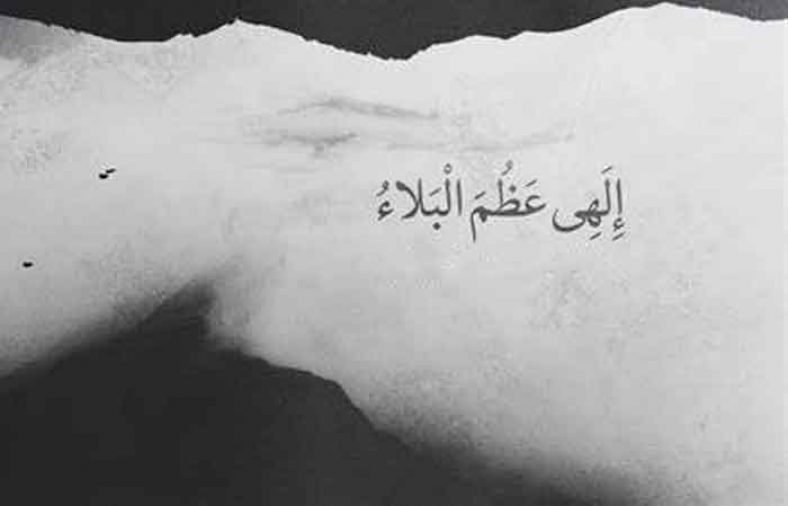 إِلَهِی عَظُمَ الْبَلاءُ